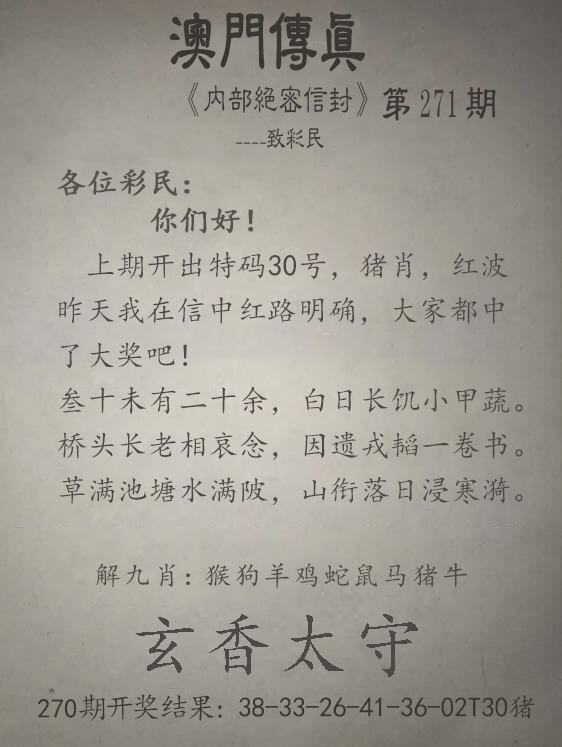 澳門傳眞
《内部絕密信封》第271期
----致彩民
各位彩民：
你们好！
上期开出特码30号，猪肖，红波
昨天我在信中红路明确，大家都中
了大奖吧！
叁十未有二十余，白日长饥小甲蔬。
桥头长老相哀念，因遗戎韬一卷书。
草满池塘水满陂，山衔落日浸寒漪。
解九肖：猴狗羊鸡蛇鼠马猪牛
玄香太守
270期开奖结果：38-33-26-41-36-02T30猪